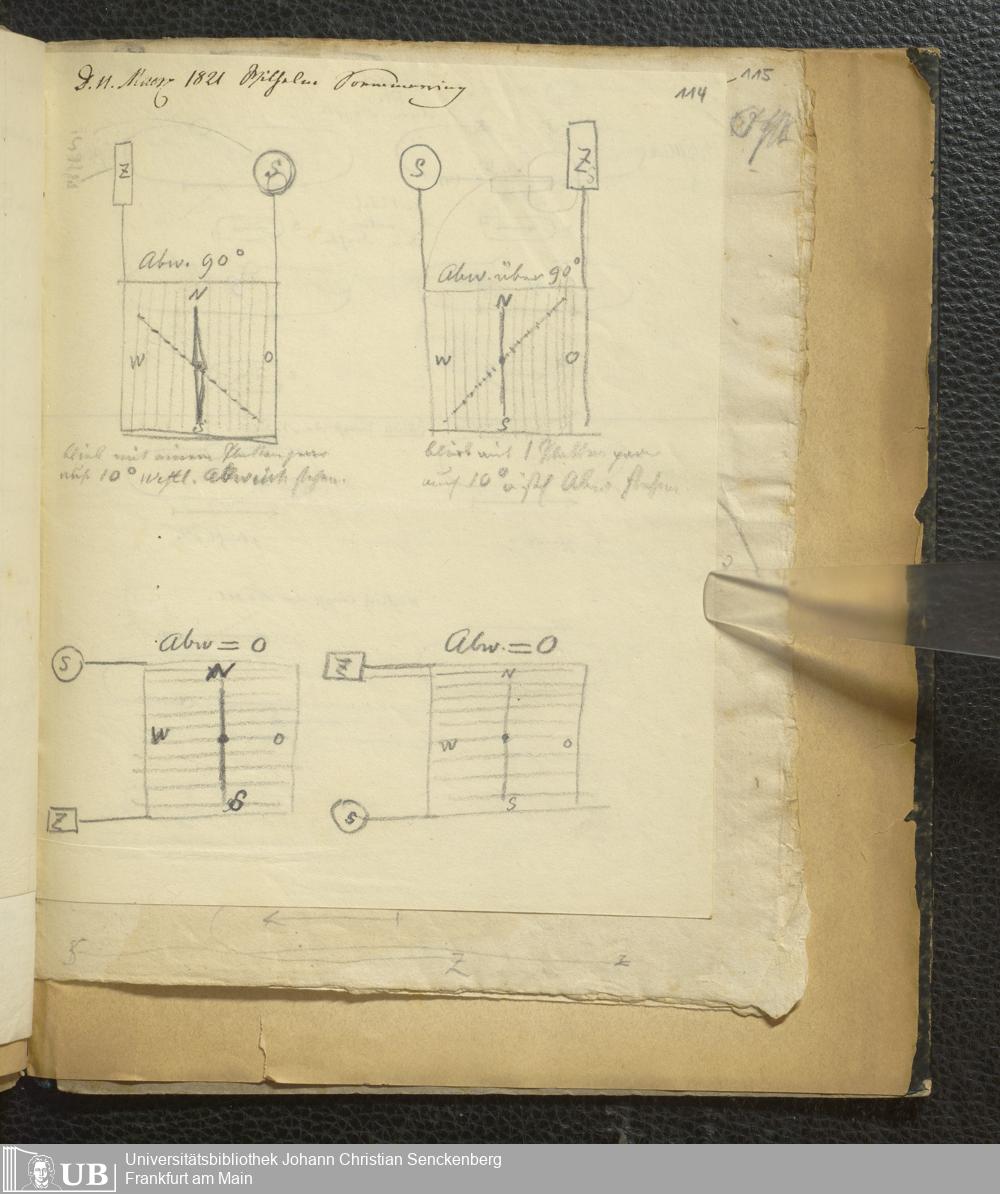 D. 11. Maerz 1821 Wilhelm Soemmerring
115
114
Z
S
Abw. 90°
N
W
O
S
blieb mit einem Plattenpaar
auf 10° westl. Abweich stehen.
S
Z
Abw. über 90°
N
W
O
S
blieb mit 1 Plattenpaar
auf 10° östl Abw. stehen
Abw = 0
S
N
W
O
S
Z
Abw. = 0
Z
N
W
O
S
S
Z
z
UB
Universitätsbibliothek Johann Christian Senckenberg
Frankfurt am Main